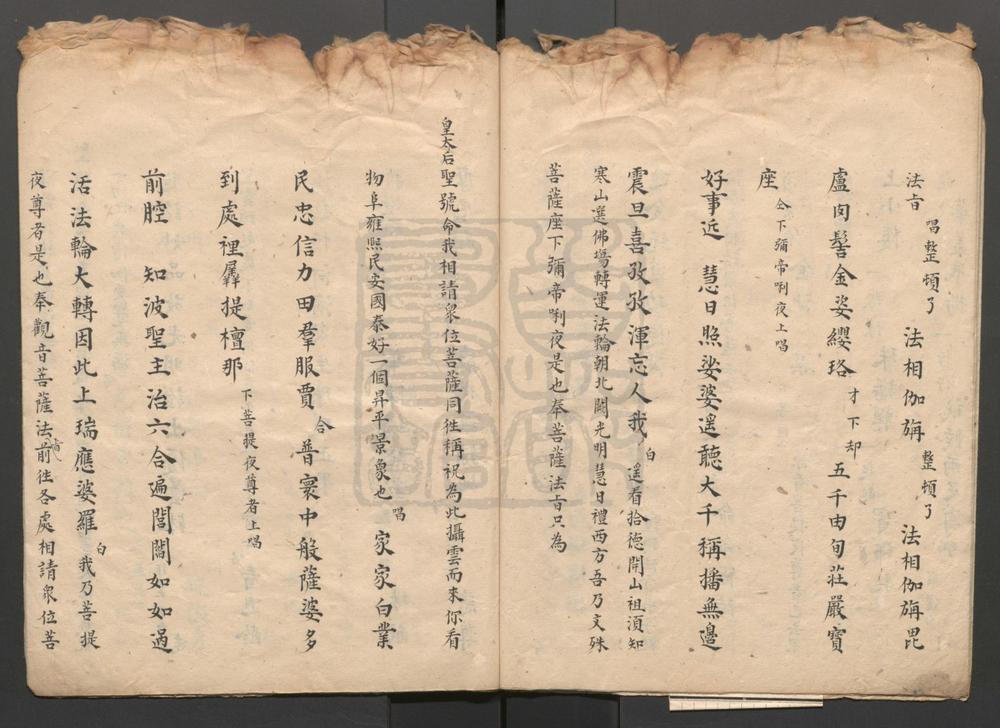 法旨唱整頓了法相伽旃整頓了法相伽旃毘
盧肉髻金姿纓珞才下却五千由旬莊嚴寶
座合下彌帝唎夜上唱
好事近慧日照娑婆遥聽大千稱播無邊
震旦喜孜孜渾忘人我白遥看拾徳開山祖湏知
寒山選佛塲轉運法輪朝北闕光明慧日禮西方吾乃文殊
菩薩座下彌帝唎夜是也奉菩薩法旨只為
皇太后聖號命我相請衆位菩薩同徃稱祝為此攝雲而來你看
物阜雍熙民安國泰好一個昇平景象也唱家家白業
民忠信力田羣服賈合普寰中般薩婆多
到處裡羼提檀那下菩提夜尊者上唱
前腔知波聖主治六合遍閻闔如如過
活法輪大轉因此上瑞應婆羅白我乃菩提
夜尊者是也奉觀音菩薩法旨前徃各處相請衆位菩